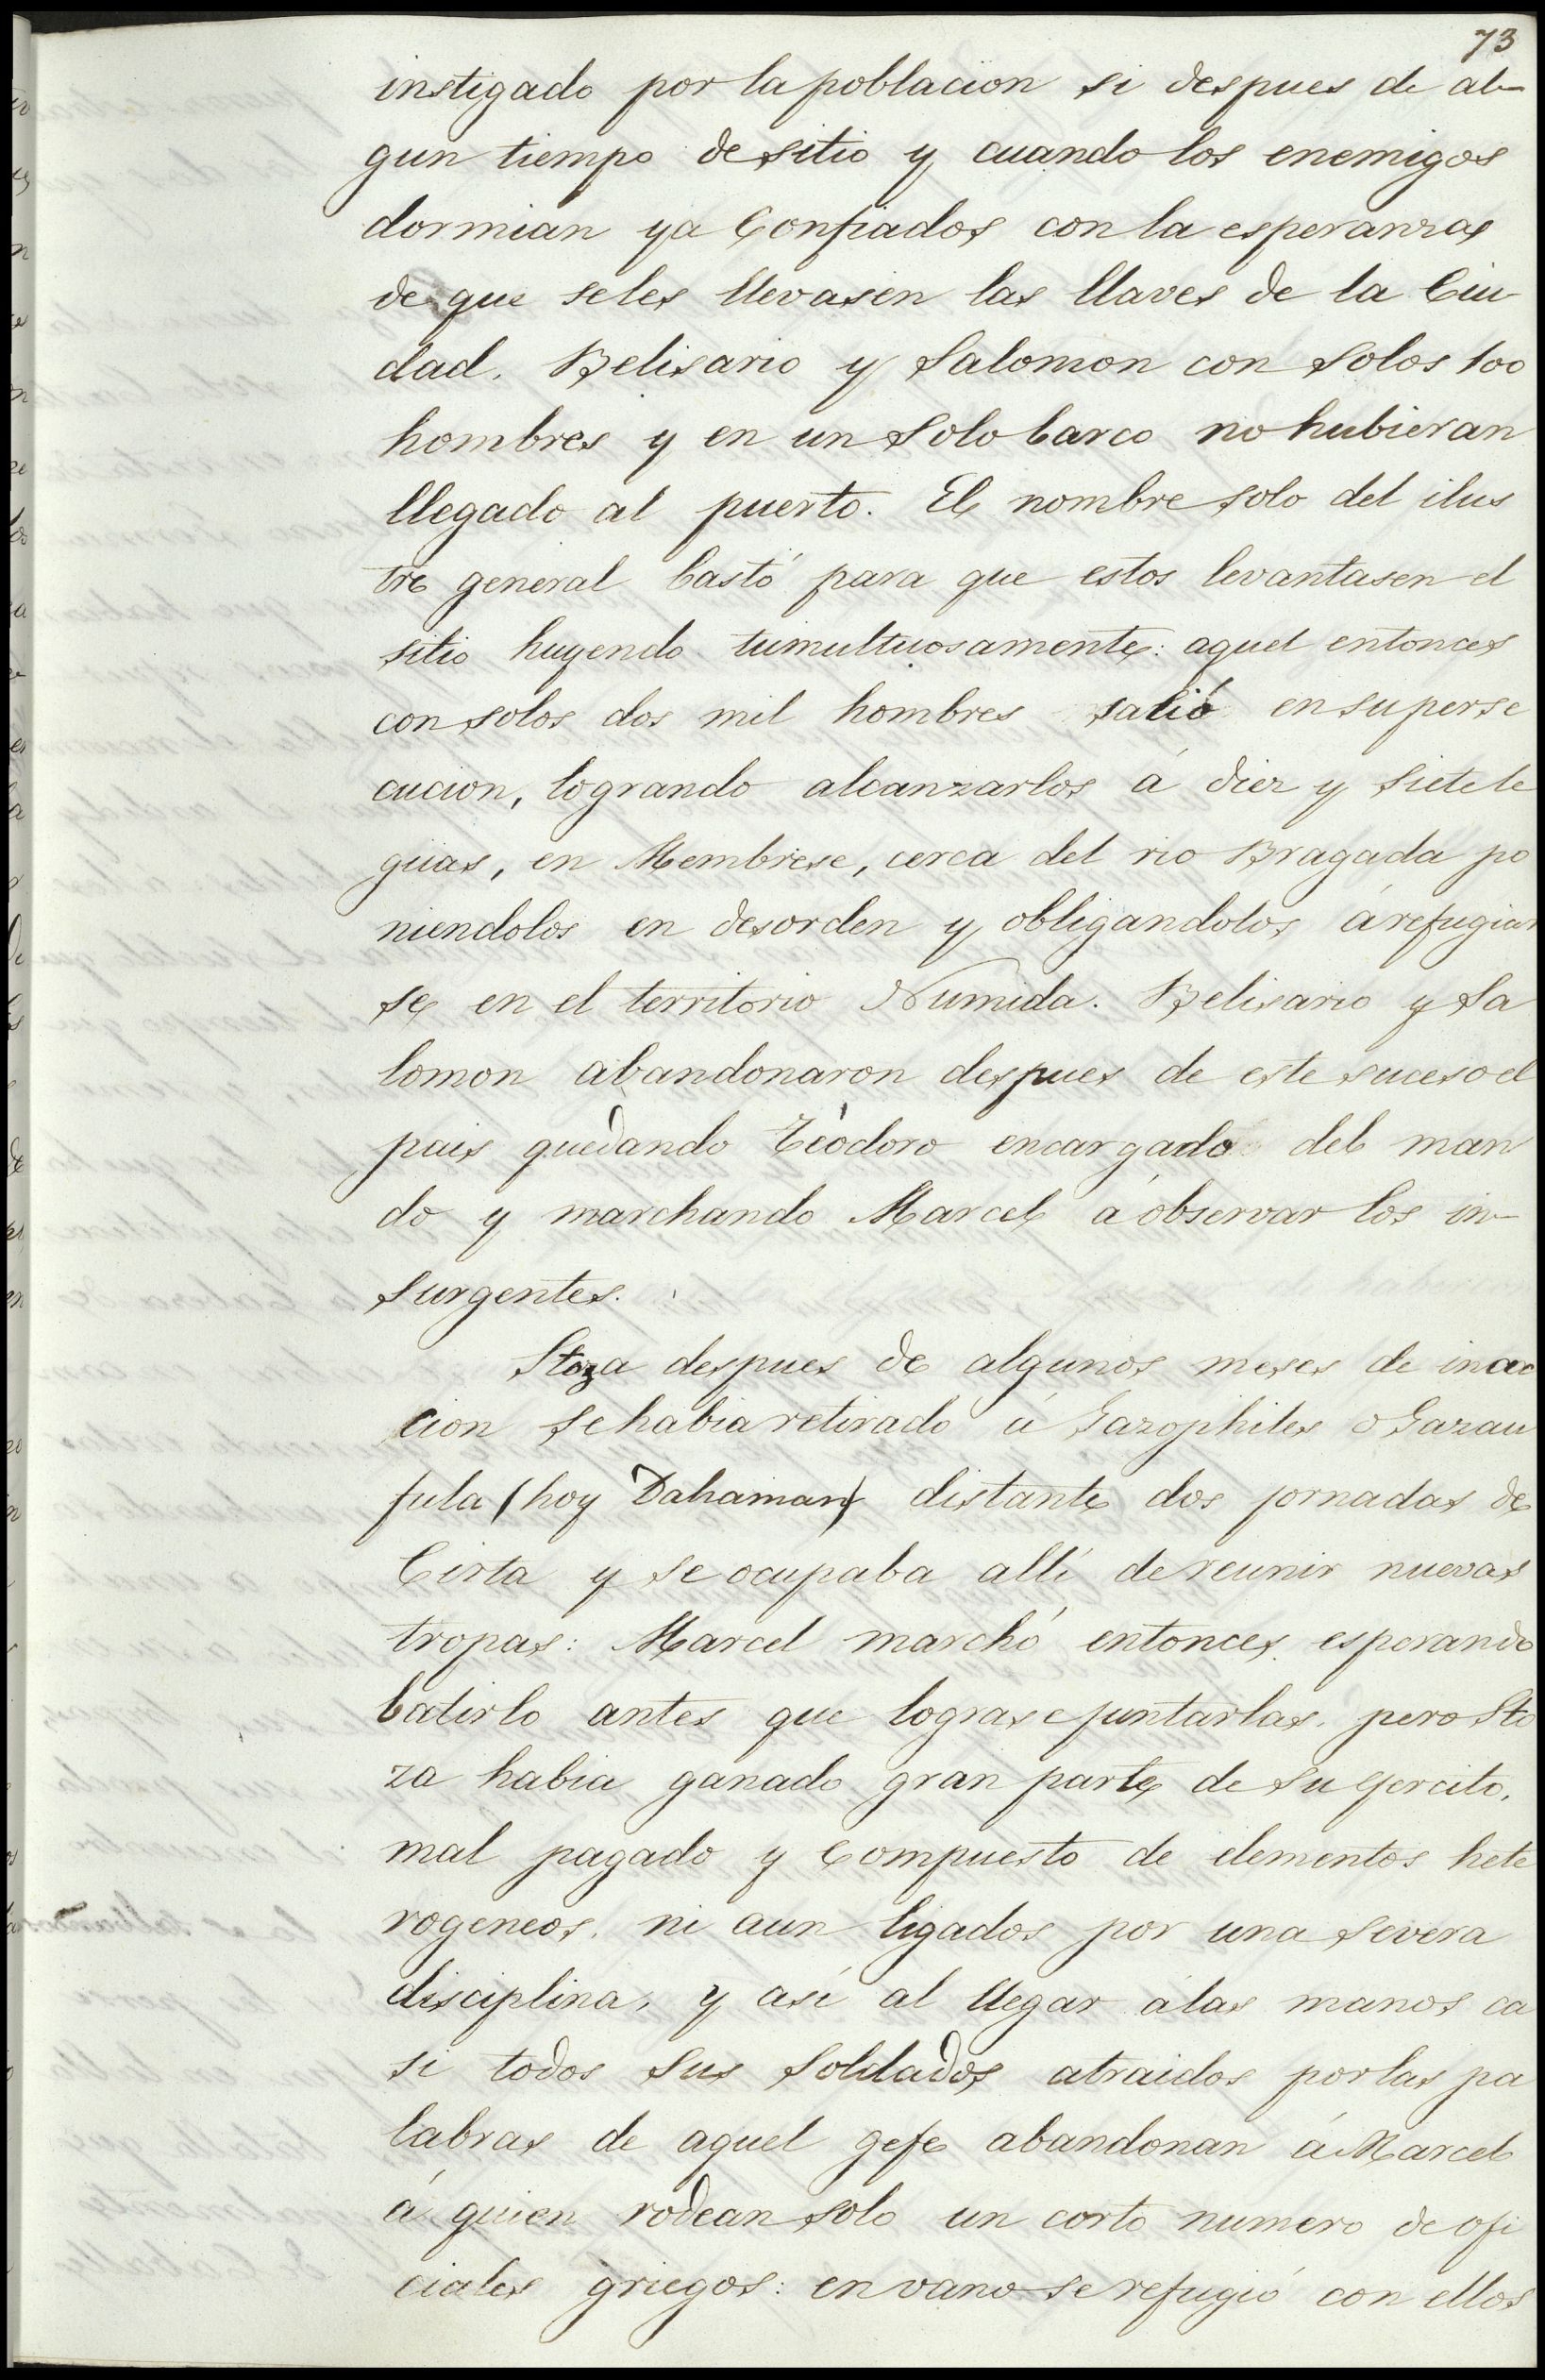 73
instigado por la poblacion si despues de al-
gun tiempo de sitio y cuando los enemigos
dormian ya Confiados con la esperanzas
de que seles llevasen las llaves de la Ciu
dad, Belisario y Salomon con solos 100
hombres y en un solo barco no hubieran
llegado al puerto. El nombre solo del ilus
tre general bastó para que estos levantasen el
sitio huyendo tumultuosamente: aquel entonces
con solos dos mil hombres salió en su perse
cucion, logrando alcanzarlos á diez y siete le
guas, en Membrese, cerca del rio Bragada po
niendolos en desorden y obligandolos á refugiar
se en el territorio Numida. Belisario y Sa
lomon abandonaron despues de este suceso el
pais quedando Teodoro encargado del man
do y marchando Marcel á observar los in-
surgentes.
Stoza despues de algunos meses de inac
cion se habia retirado á Gazophiles o Gazau
fula (hoy Dahaman) distante dos jornadas de
Cirta y se ocupaba allí de reunir nuevas
tropas: Marcel marchó entonces esperando
batirlo antes que lograse juntarlas, pero Sto
za habia ganado gran parte de su ejercito,
mal pagado y Compuesto de elementos hete
rogeneos, ni aun ligados por una severa
disciplina, y así al llegar á las manos ca
si todos sus soldados atraidos por las pa
labras de aquel gefe abandonan á Marcel
á quien rodean solo un corto numero de ofi
ciales griegos: en vano se refugió con ellos